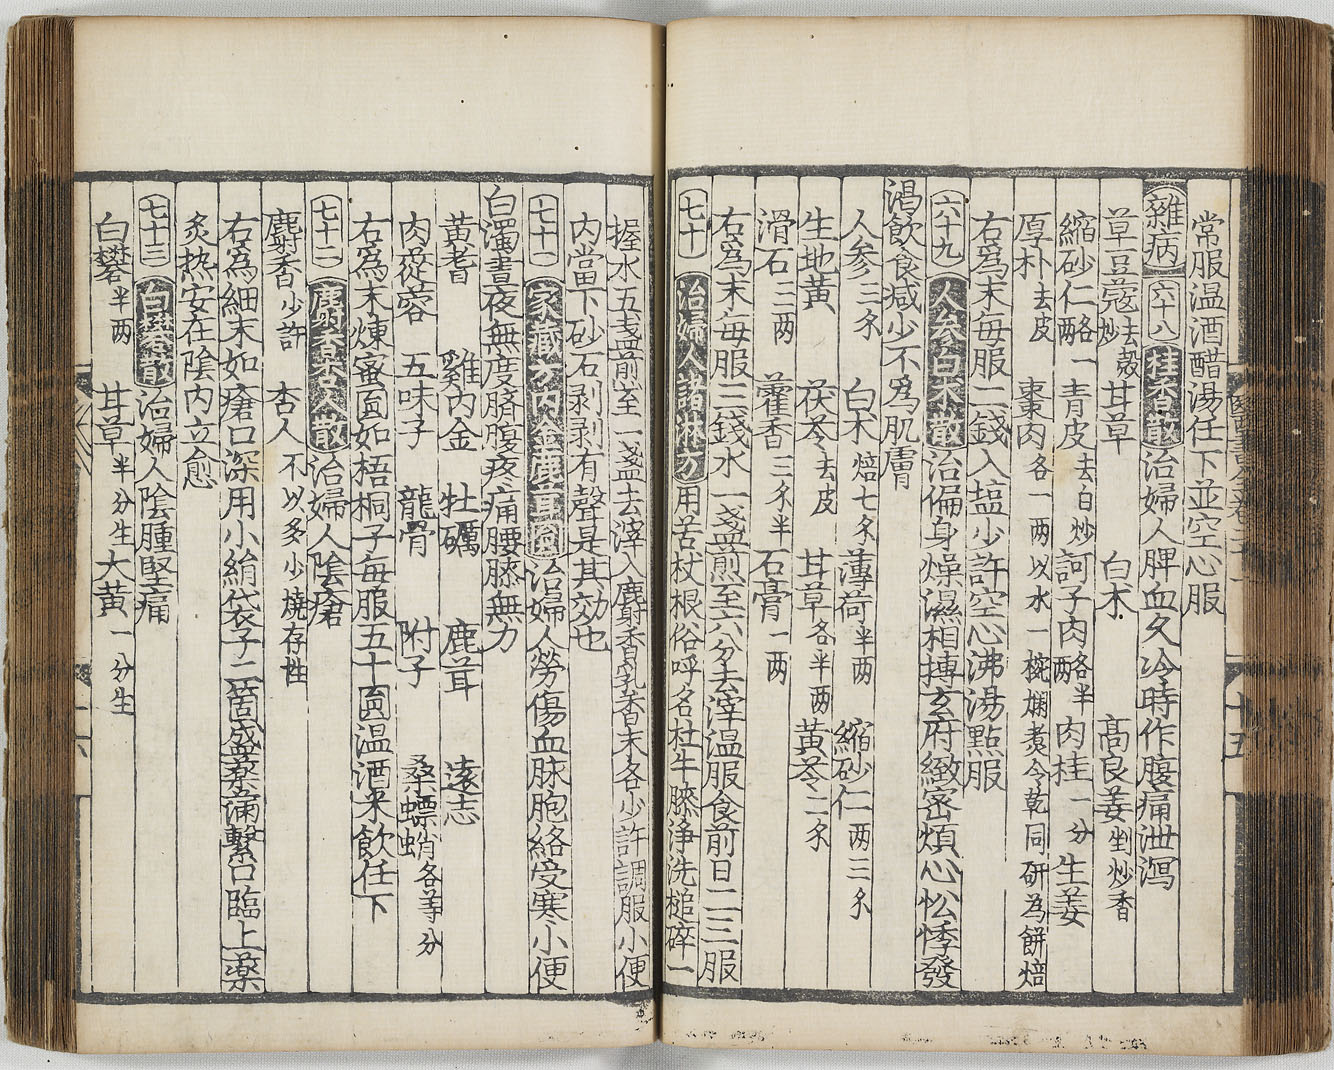 常服温酒醋湯任下並空心服
雜病 六十八 桂香散 治婦人脾血久冷時作腹痛泄瀉
草豆蔻去殼炒 甘草 白朮 高良姜剉炒香
縮砂仁各一兩 青皮去白炒 訶子肉各半兩 肉桂一分 生姜
厚朴去皮 棗肉各一兩以水一椀爛煮令乾同研為餅焙
右為末每服二錢入塩少許空心沸湯點服
六十九 人参白朮散 治偏身燥濕相搏玄府緻密煩心忪悸發
渴飲食减少不為肌膚
人参三錢 白朮焙七錢 薄荷半兩 縮砂仁兩三錢
生地黄 茯苓去皮 甘草各半兩 黄芩二錢
滑石三兩 藿香三錢半 石膏一兩
右為末每服三錢水一盞煎至六分去滓温服食前日二三服
七十 治婦人諸淋方 用苦杖根俗呼名杜牛膝浄洗槌碎一
握水五盞煎至一盞去滓入麝香乳香末各少許調服小便
内當下砂石剥剥有聲是其効也
七十一 家藏方内金鹿茸圎 治婦人勞傷血脉胞絡受寒小便
白濁晝夜無度臍腹疼痛腰膝無力
黄耆 雞内金 牡礪 鹿茸 遠志
肉蓯蓉 五味子 龍骨 附子 桑螵蛸各等分
右為末煉蜜圎如梧桐子每服五十圎温酒米飲任下
七十二 麝香杏人散 治婦人陰瘡
麝香少許 杏人不以多少燒存性
右為細末如瘡口深用小絹袋子二箇盛藥滿繫口臨上藥
炙热安在陰内立愈
七十三 白礬散 治婦人陰腫堅痛
白礬半兩 甘草半分生 大黄一分生
十五
十六